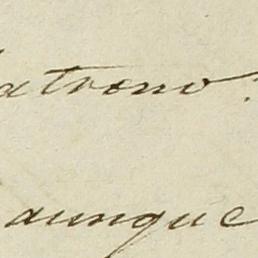 atrono.
aunque